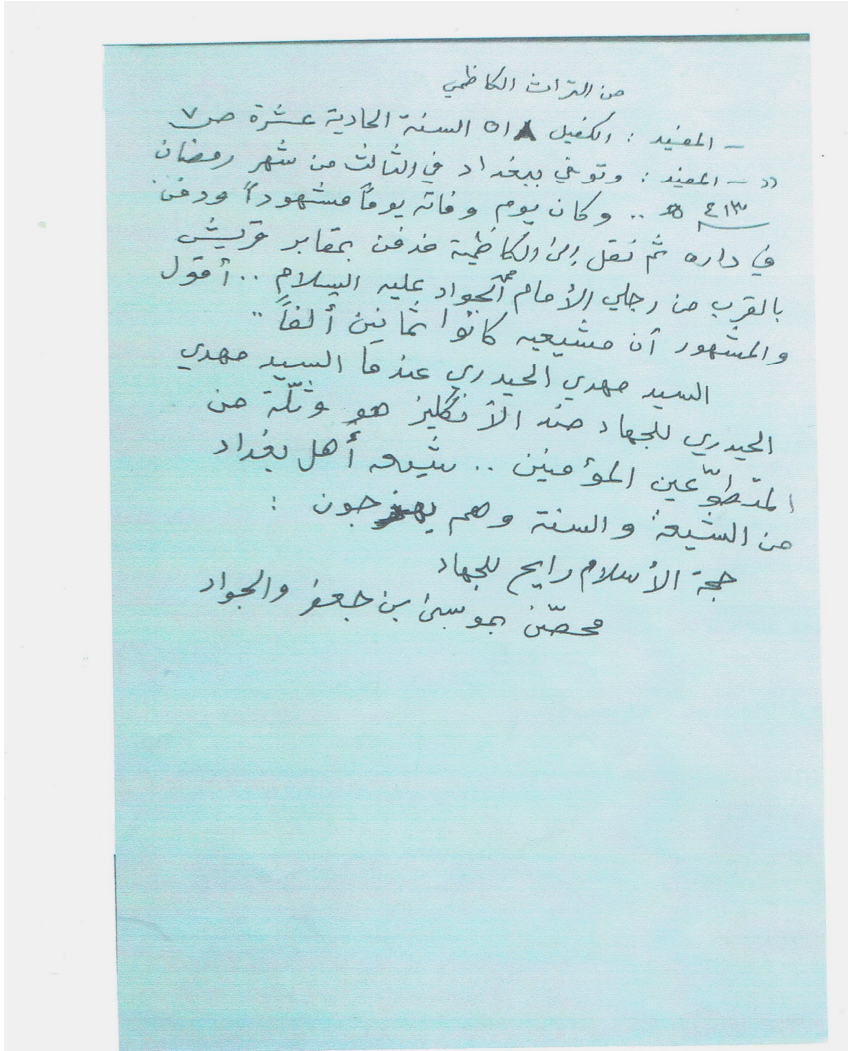 من التراث الكاظمي
– المفيد : الكفيل ٥١ السنة الحادية عشرة ص ٧
" – المفيد : وتوفي ببغداد في الثالث من شهر رمضان
٤١٣ هـ .. وكان يوم وفاته يوماً مشهوداً ودفن
في داره ثم نقل إلى الكاظمية فدفن بمقابر قريش
بالقرب من رجلي الأمام محمد الجواد عليه السلام .. أقول
والمشهور أن مشيعيه كانوا ثمانين ألفاً "
السيد مهدي الحيدري عندما السيد مهدي
الحيدري للجهاد ضد الأنكليز هو وثلّة من
المتطوّعين المؤمنين .. شيعه أهل بغداد
من الشيعة والسنة وهم يهزجون :
حجة الأسلام رايح للجهاد
محصّن بموسى بن جعفر والجواد